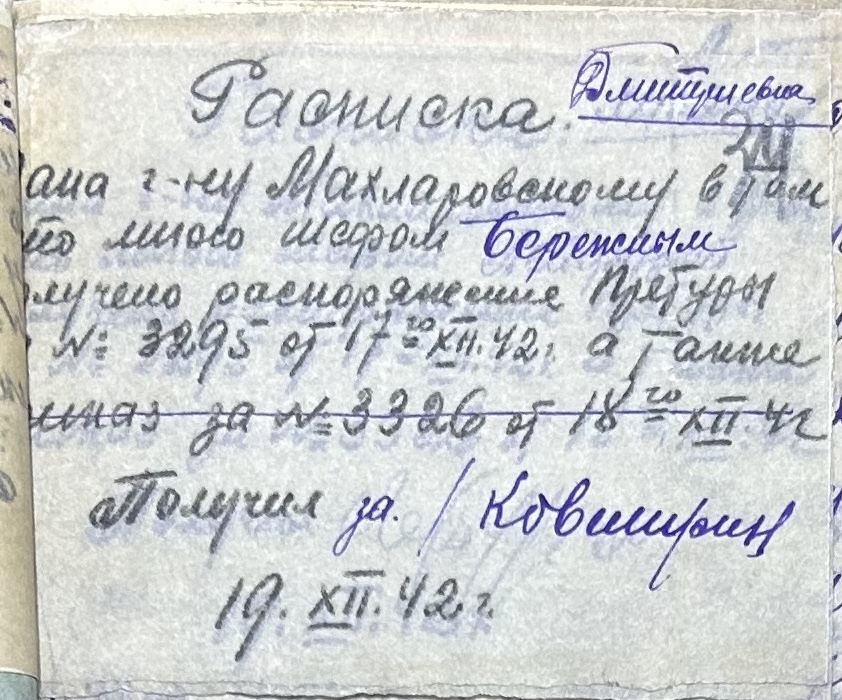 Дмитриевка
Расписка.
24
ана г-ну Махларовскому в том
то мною шефом Бережным
олучено распоряжение Претуры
№ 3295 от 17го XII.42г. а также
иказ за № 3326 от 18го XII.42
Получил за. / Ковширин
19. XII.42 г.